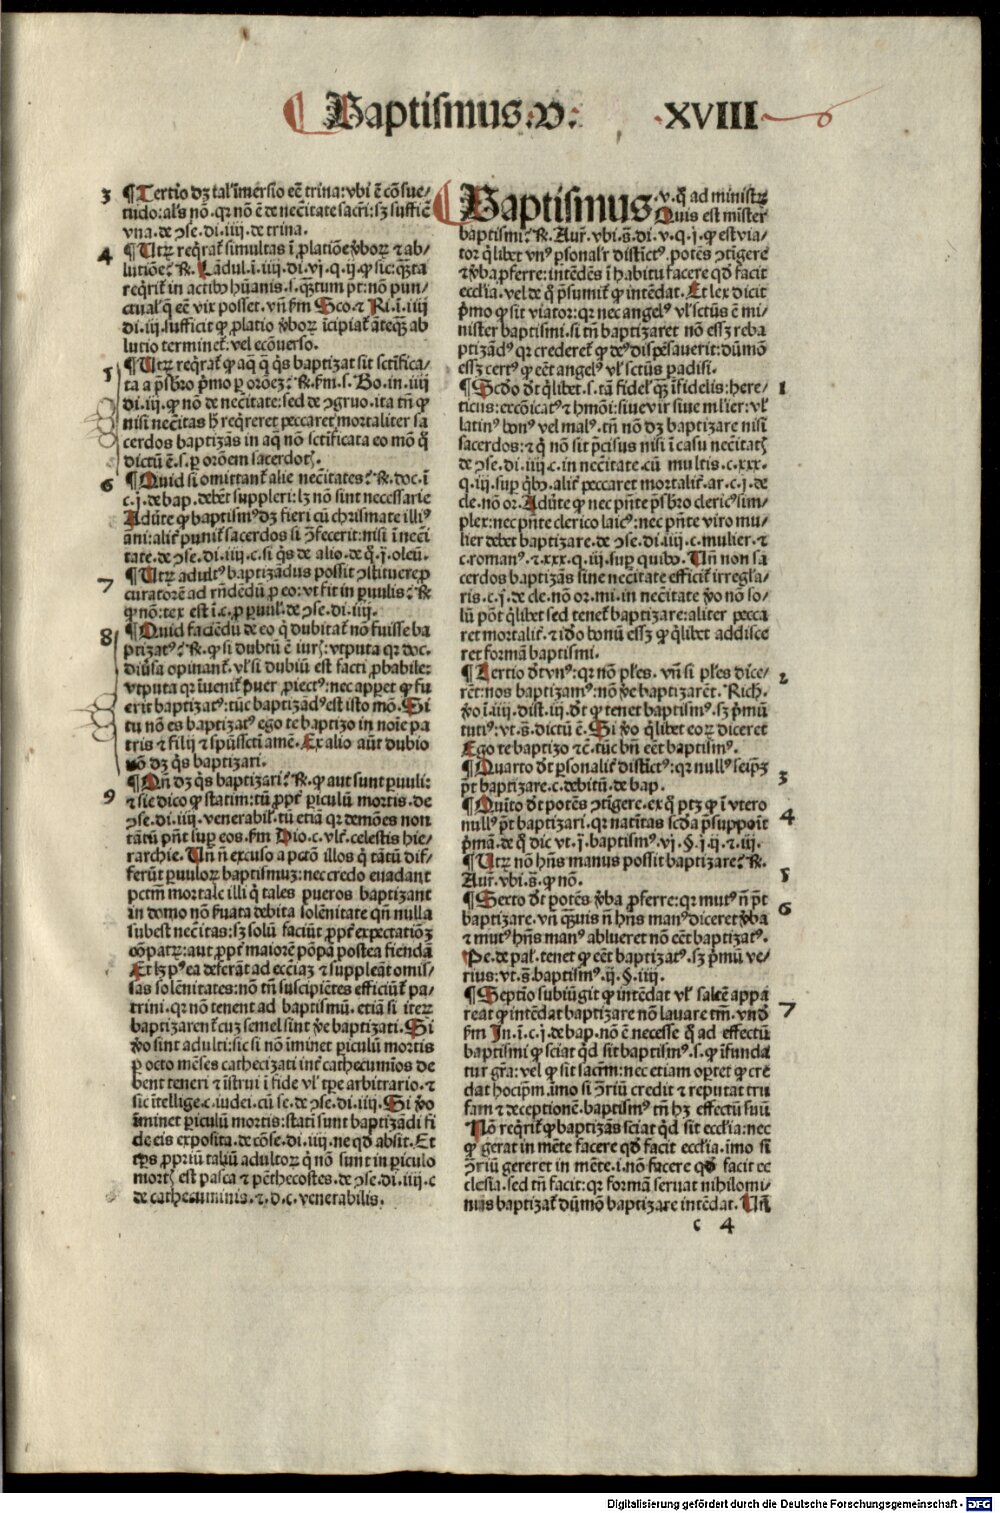 Baptismus.v. XVIII
3 ¶Tertio dꝫ tal' īmersio eē trina: vbi ē cōsue/
tudo: al's nō. qr nō ē de nec̄itate sacr̄i: sꝫ suffic̄
vna. de ꝯse. di. iiij. de trina.
4 ¶Utꝝ reqrat̄ simultas ī ꝓlatiōe v̄boꝝ ⁊ ab/
lutiōe? ꝶ. Lādul. ī. iiij. di. vj. q. ij. ꝙ sic: q̄ta
reqrit̄ in actibꝰ hūanis. s. q̄tum pt: nō pun/
ctual' q eē vix posset. vn̄ fm Sco. ⁊ Ri. ī. iiij
di. iij. sufficit ꝙ ꝓlatio v̄boꝝ īcipiat̄ āteq̄ ab
lutio terminet̄: vel ecōuerso.
5 ¶Utꝝ reqrat̄ ꝙ aq̄ q̄ q̇s baptizat sit sctifica/
ta a p̄sbr̄o pͥmo ꝑ orōeꝫ? ꝶ. fm. s. Bo. in. iiij
di. iij. ꝙ nō de nec̄itate: sed de ꝯgruo. ita tn̄ ꝙ
nisi nec̄itas h̄ reqreret peccaret mortaliter sa
cerdos baptizās in aq̄ nō sctificata eo mō q̄
dictū ē. s. ꝑ orōem sacerdotꝭ.
6 ¶Quid si omittant̄ alie nec̄itates? ꝶ. doc. ī
c. j. de bap. debēt suppleri: lꝫ nō sint necessarie
Adūte ꝙ baptismꝰ dꝫ fieri cū chrismate illiꝰ
āni: alit̄ punit̄ sacerdos si ꝯfecerit: nisi ī nec̄i
tate. de ꝯse. di. iiij. c. si q̇s de alio. de q̄. j. oleū.
7 ¶Utꝝ adultꝰ baptizādus possit ꝯstituere ꝓ
curatorē ad rn̄dēdū ꝓ eo: vt fit in ꝑuulis? ꝶ
ꝙ nō: tex est ī. c. ꝓ ꝑuul'. de ꝯse. di. iiij.
8 ¶Quid faciēdū de eo q̄ dubitat̄ nō fuisse ba
ptizatꝰ? ꝶ. ꝙ si dubtū ē iurꝭ: vtputa qr doc.
diūsa opinant̄. vl' si dubiū est facti ꝓbabile:
vtputa qr īuenit̄ puer ꝓiectꝰ: nec appet ꝙ fu
erit baptizatꝰ: tūc baptizādꝰ est isto mō. Si
tu nō es baptizatꝰ ego te baptizo in noīe pa
tris ⁊ filij ⁊ spūssctī amē. Ex alio aūt dubio
nō dꝫ q̇s baptizari.
9 ¶Qn̄ dꝫ q̇s baptizari? ꝶ. ꝙ aut sunt ꝑuuli:
⁊ sic dico ꝙ statim: tū ꝓpt̄ ꝑiculū mortis. de
ꝯse. di. iiij. venerabil'. tū etiā qr demōes non
tātū pn̄t suꝑ eos. fm Dio. c. vlt̄. celestis hie/
rarchie. Un̄ n̄ excuso a pctō illos q̄ tātū dif/
ferūt ꝑuuloꝝ baptismuꝫ: nec credo euadant
pctm̄ mortale illi q̄ tales pueros baptizant
in domo nō ẜuata debita solēnitate qn̄ nulla
subest nec̄itas: sꝫ solū faciūt ꝓpt̄ expectatiōꝫ
cōpatꝝ: aut ꝓpt̄ maiorē pōpā postea fiendā
Et lꝫ pꝰea deferāt ad ecc̄iaꝫ ⁊ suppleāt omis/
sas solēnitates: nō tn̄ suscipiētes efficiūt̄ pa/
trini. qr nō tenent ad baptismū. etiā si iteꝝ
baptizarent̄ cuꝫ semel sint v̄e baptizati. Si
v̄o sint adulti: sic si nō iminet ꝑiculū mortis
ꝑ octo mēses cathecizati int̄ cathecumīos de
bent teneri ⁊ īstrui ī fide vl' tꝑe arbitrario. ⁊
sic ītellige. c. iudei. cū se. de ꝯse. di. iiij. Si v̄o
īminet ꝑiculū mortis: statī sunt baptizādi fi
de eis exposita. de cōse. di. iiij. ne qd̄ absit. Et
tp̄s ꝓpriū taliū adultoꝝ q̄ nō sunt in ꝑiculo
mortꝭ est pasca ⁊ pēthecostes. de ꝯse. di. iiij. c
de cathecuminis. ⁊. d. c. venerabilis.
Baptismus .v. q̄ ad ministꝝ
Quis est mīster
baptismi? ꝶ. Aur̄. vbi. s̄. di. v. q. j. ꝙ est via/
tor q̇libet vnꝰ ꝑsonalr̄ distīctꝰ. potēs ꝯtigere
⁊ v̄ba ꝓferre: intēdēs ī habitu facere qd̄ facit
ecclīa. vel de q̄ p̄sumit̄ ꝙ intēdat. Et lex dicit
pͥmo ꝙ sit viator: qr nec angelꝰ vl' sctūs ē mi/
nister baptismi. si tn̄ baptizaret nō esꝫ reba
ptizādꝰ qr crederet̄ ꝙ deꝰ dispēsauerit: dūmō
esꝫ certꝰ ꝙ eēt angelꝰ vl' sctūs padisi.
¶Scdo dt̄ q̇libet. s. tā fidel' q̄ īfidelis: here/ 1
ticus: excōicatꝰ ⁊ hmōi: siue vir siue ml'ier: vl'
latinꝰ bonꝰ vel malꝰ. tn̄ nō dꝫ baptizare nisi
sacerdos: ⁊ q̄ nō sit p̄cisus nisi ī casu nec̄itatꝭ
de ꝯse. di. iiij. c. in nec̄itate. cū multis. c. xxx.
q. iij. suꝑ q̇bꝰ. alit̄ peccaret mortalit̄. ar. c. j. de
cle. nō or. Adūte ꝙ nec pn̄te p̄sbr̄o clericꝰ sim/
plex: nec pn̄te clerico laicꝰ: nec pn̄te viro mu/
lier debet baptizare. de ꝯse. di. iiij. c. mulier. ⁊
c. romanꝰ. ⁊. xxx. q. iij. suꝑ quibꝰ. Un̄ non sa
cerdos baptizās sine nec̄itate efficit̄ irregl'a/
ris. c. j. de cle. nō or. mi. in nec̄itate v̄o nō so/
lū pōt q̇libet sed tenet̄ baptizare: aliter pecca
ret mortalit̄. ⁊ iō bonū esꝫ ꝙ q̇libet addisce
ret formā baptismi.
¶Tertio dt̄ vnꝰ: qr nō pl'es. vn̄ si pl'es dice/ 2
rēt: nos baptizamꝰ: nō v̄e baptizarēt. Rich.
v̄o ī. iiij. dist. iij. dt̄ ꝙ tenet baptismꝰ. sꝫ pͥmū
tutiꝰ: vt. s̄. dictū ē. Si v̄o q̇libet eoꝝ diceret
Ego te baptizo ⁊c̄. tūc bn̄ eēt baptismꝰ.
¶Quarto dt̄ ꝑsonalit̄ distīctꝰ: qr nullꝰ seip̄ꝫ 3
pt̄ baptizare. c. debitū. de bap.
¶Quīto dt̄ potēs ꝯtigere. ex q̄ ptꝫ ꝙ ī vtero 4
nullꝰ pt̄ baptizari. qr natiītas scda p̄suppoīt
pͥmā. de q̄ dic vt. j. baptismꝰ. vj. §. j. ij. ⁊. iij.
¶Utꝝ nō hn̄s manus possit baptizare? ꝶ. 5
Aur̄. vbi. s̄. ꝙ nō.
¶Sexto dt̄ potēs v̄ba ꝓferre: qr mutꝰ n̄ pt̄ 6
baptizare. vn̄ q̄uis n̄ hn̄s manꝰ diceret v̄ba
⁊ mutꝰ hn̄s manꝰ ablueret nō eēt baptizatꝰ.
Pe. de pal. tenet ꝙ eēt baptizatꝰ. sꝫ pͥmū ve/
rius: vt. s̄. baptismꝰ. ij. §. iiij.
¶Septīo subiūgit ꝙ intēdat vl' saltē appa 7
reat ꝙ intēdat baptizare nō lauare tm̄. vnd̄
fm In. ī. c. j. de bap. nō ē necesse q̄ ad effectū
baptismi ꝙ sciat qd̄ sit baptismꝰ. s. ꝙ īfunda
tur grā: vel ꝙ sit sacrm̄: nec etiam oꝑtet ꝙ cre
dat hocip̄m. īmo si ꝯriū credit ⁊ reputat tru
fam ⁊ deceptionē. baptismꝰ tn̄ hꝫ effectū suū
Nō reqrit̄ ꝙ baptizās sciat qd̄ sit ecclīa: nec
ꝙ gerat in mēte facere qd̄ facit ecclīa. īmo si
ꝯriū gereret in mēte. i. nō facere qd̄ facit ec
clesia. sed tn̄ facit: qr formā seruat nihilomi/
nus baptizat̄ dūmō baptizare intēdat. Un̄
c 4
Digitalisierung gefördert durch die Deutsche Forschungsgemeinschaft - DFG